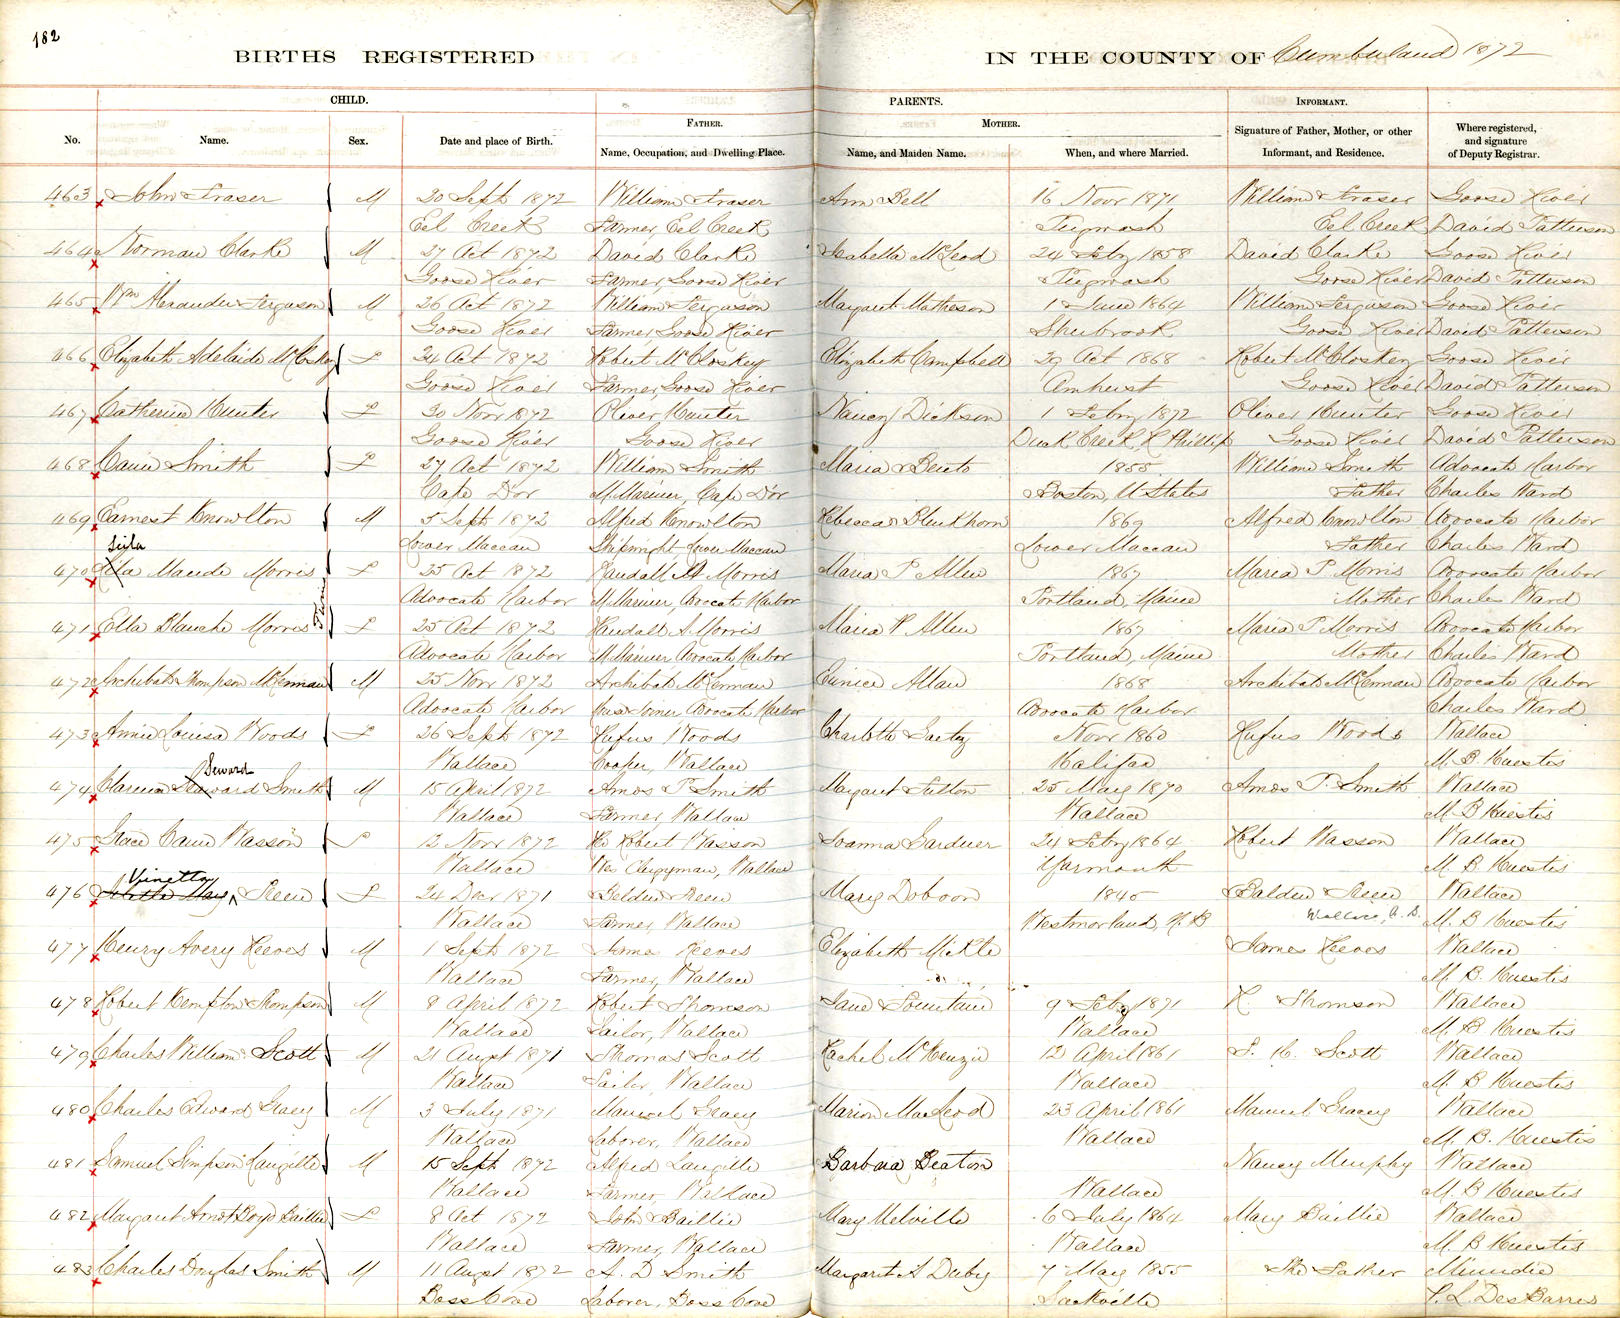 182
BIRTHS REGISTERED IN THE COUNTY OF Cumberland 1872
CHILD. PARENTS. INFORMANT.
FATHER. MOTHER.
No. Name. Sex. Date and place of Birth. Name, Occupation, and Dwelling Place. Name, and Maiden Name. When, and where Married. Signature of Father, Mother, or other Informant, and Residence. Where registered, and signature of Deputy Registrar.
463 John Fraser M 20 Sept 1872 William Fraser Ann Bell 16 Novr 1871 William Fraser Goose River
Eel Creek Farmer, Eel Creek Pugwash Eel Creek David Patterson
464 Norman Clarke M 27 Oct 1872 David Clarke Isabella McLeod 24 Feby 1858 David Clarke Goose River
Goose River Farmer, Goose River Pugwash Goose River David Patterson
465 Wm Alexander Ferguson M 26 Oct 1872 William Ferguson Margaret Matheson 1 June 1864 William Ferguson Goose River
Goose River Farmer, Goose River Sherbrook Goose River David Patterson
466 Elizabeth Adelaide McCloskey F 24 Oct 1872 Robert McCloskey Elizabeth Campbell 29 Oct 1868 Robert McCloskey Goose River
Goose River Farmer, Goose River Amherst Goose River David Patterson
467 Catherine Hunter F 30 Novr 1872 Oliver Hunter Nancy Dickson 1 Feby 1872 Oliver Hunter Goose River
Goose River Goose River Creek, R. Phillip Goose River David Patterson
468 Smith F 27 Oct 1872 William Smith Maria 1855 William Smith Advocate Harbor
Cape D'or M. Mariner, Cape D'or Boston, U States Father Charles Ward
469 Earnest Knowlton M 5 Sept 1872 Alfred Knowlton Rebecca Blenkhorn 1869 Alfred Knowlton Advocate Harbor
Lower Maccan Shipwright, Lower Maccan Lower Maccan Father Charles Ward
Leila
470 Lila Maude Morris F 25 Oct 1872 Randall A Morris Maria P Allen 1867 Maria P. Morris Advocate Harbor
Advocate Harbor M. Mariner, Avocate Harbor Portland, Maine Mother Charles Ward
471 Etta Blanche Morris Twins F 25 Oct 1872 Randall A. Morris Maria P Allen 1867 Maria P Morris Advocate Harbor
Advocate Harbor M. Mariner, Advocate Harbor Portland, Maine Mother Charles Ward
472 Archibald Thompson McLennan M 25 Novr 1872 Archibald McLennan Eunice Allan 1868 Archibald McLennan Advocate Harbor
Advocate Harbor Advocate Harbor Advocate Harbor Charles Ward
473 Annie Louisa Woods F 26 Sept 1872 Rufus Woods Charlotte Novr 1860 Rufus Woods Wallace
Wallace Cooper, Wallace Halifax M. B. Huestis
Seward
474 Smith M 15 April 1872 Amos T Smith Margaret Fulton 25 May 1870 Amos T. Smith Wallace
Wallace Farmer, Wallace Wallace M. B Huestis
475 Grace Wasson F 12 Novr 1872 Robert Wasson Joanna Gardner 24 Feby 1864 Robert Wasson Wallace
Wallace Clergyman, Wallace Yarmouth M. B. Huestis
Vinetta
476 May ^ Steen F 24 Decr 1871 Belden Steen Mary Dobson 1845 Balden Steen Wallace
Wallace Farmer, Wallace Westmorland, N. B Wallace, M. B Huestis
477 Henry Avery Reeves M 1 Sept 1872 James Reeves Elizabeth Mickle James Reeves Wallace
Wallace Farmer, Wallace M. B. Huestis
478 Robert Kempton Thompson M 8 April 1872 Robert Thomson Jane Fountain 9 Feby 1871 R. Thomson Wallace
Wallace Sailor, Wallace Wallace M. B Huestis
479 Charles William Scott M 21 Augst 1871 Thomas Scott Rachel McKenzie 12 April 1861 Scott Wallace
Wallace Sailor, Wallace Wallace M. B Huestis
480 Charles Edward Gracey M 3 July 1871 Manuel Gracey Marion MacLeod 23 April 1861 Manuel Gracey Wallace
Wallace Laborer, Wallace Wallace M. B. Huestis
481 Samuel Simpson Langille M 15 Sept 1872 Alfred Langille Barbara Beaton Nancy Murphy Wallace
Wallace Farmer, Wallace Wallace M. B Huestis
482 Margaret Arnot Boyd Baillie F 8 Oct 1872 John Baillie Mary Melville 6 July 1864 Mary Baillie Wallace
Wallace Farmer, Wallace Wallace M. B Huestis
483 Charles Douglas Smith M 11 Augst 1872 A. D Smith Margaret A Derby 7 May 1855 The Father Minudie
Bass Cove Laborer, Bass Cove Sackville DesBarres